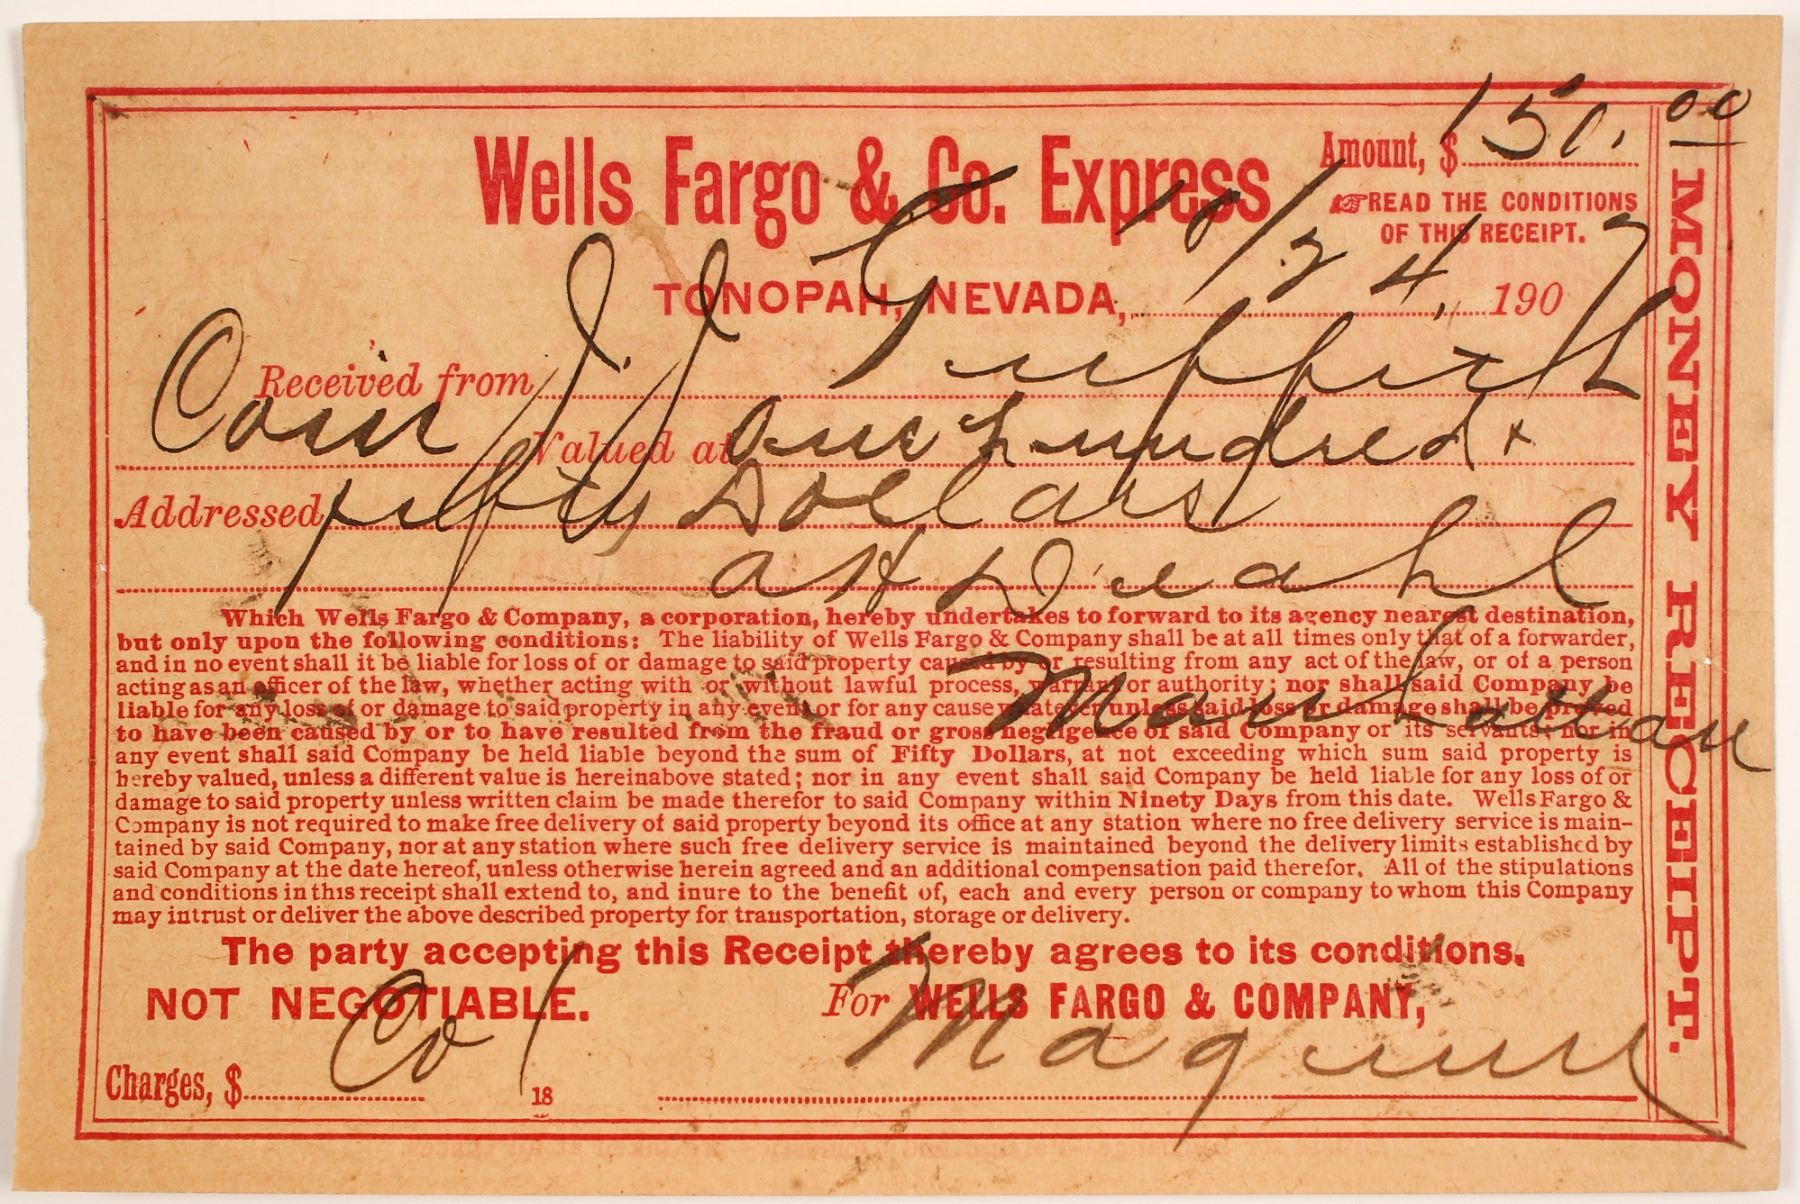 Amount, $ 150.00
Wells Fargo & Co. Express
READ THE CONDITIONS
OF THIS RECEIPT.
TONOPAH, NEVADA, 10/24, 1907
Received from J. J. Griffith
Coin Valued at one hundred +
Addressed fifty Dollars
Diehl
Manhattan
Which Wells Fargo & Company, a corporation, hereby undertakes to forward to its agency nearest destination,
but only upon the following conditions: The liability of Wells Fargo & Company shall be at all times only that of a forwarder,
and in no event shall it be liable for loss of or damage to said property caused by or resulting from any act of the law, or of a person
acting as an officer of the law, whether acting with or without lawful process, warrant or authority; nor shall said Company be
liable for any loss of or damage to said property in any event or for any cause whatever unless said loss or damage shall be proved
to have been caused by or to have resulted from the fraud or gross negligence of said Company or its servants; nor in
any event shall said Company be held liable beyond the sum of Fifty Dollars, at not exceeding which sum said property is
hereby valued, unless a different value is hereinabove stated; nor in any event shall said Company be held liable for any loss of or
damage to said property unless written claim be made therefor to said Company within Ninety Days from this date. Wells Fargo &
Company is not required to make free delivery of said property beyond its office at any station where no free delivery service is main-
tained by said Company, nor at any station where such free delivery service is maintained beyond the delivery limits established by
said Company at the date hereof, unless otherwise herein agreed and an additional compensation paid therefor. All of the stipulations
and conditions in this receipt shall extend to, and inure to the benefit of, each and every person or company to whom this Company
may intrust or deliver the above described property for transportation, storage or delivery.
The party accepting this Receipt thereby agrees to its conditions.
NOT NEGOTIABLE. For WELLS FARGO & COMPANY,
Charges, $ Col
18
MONEY RECEIPT.